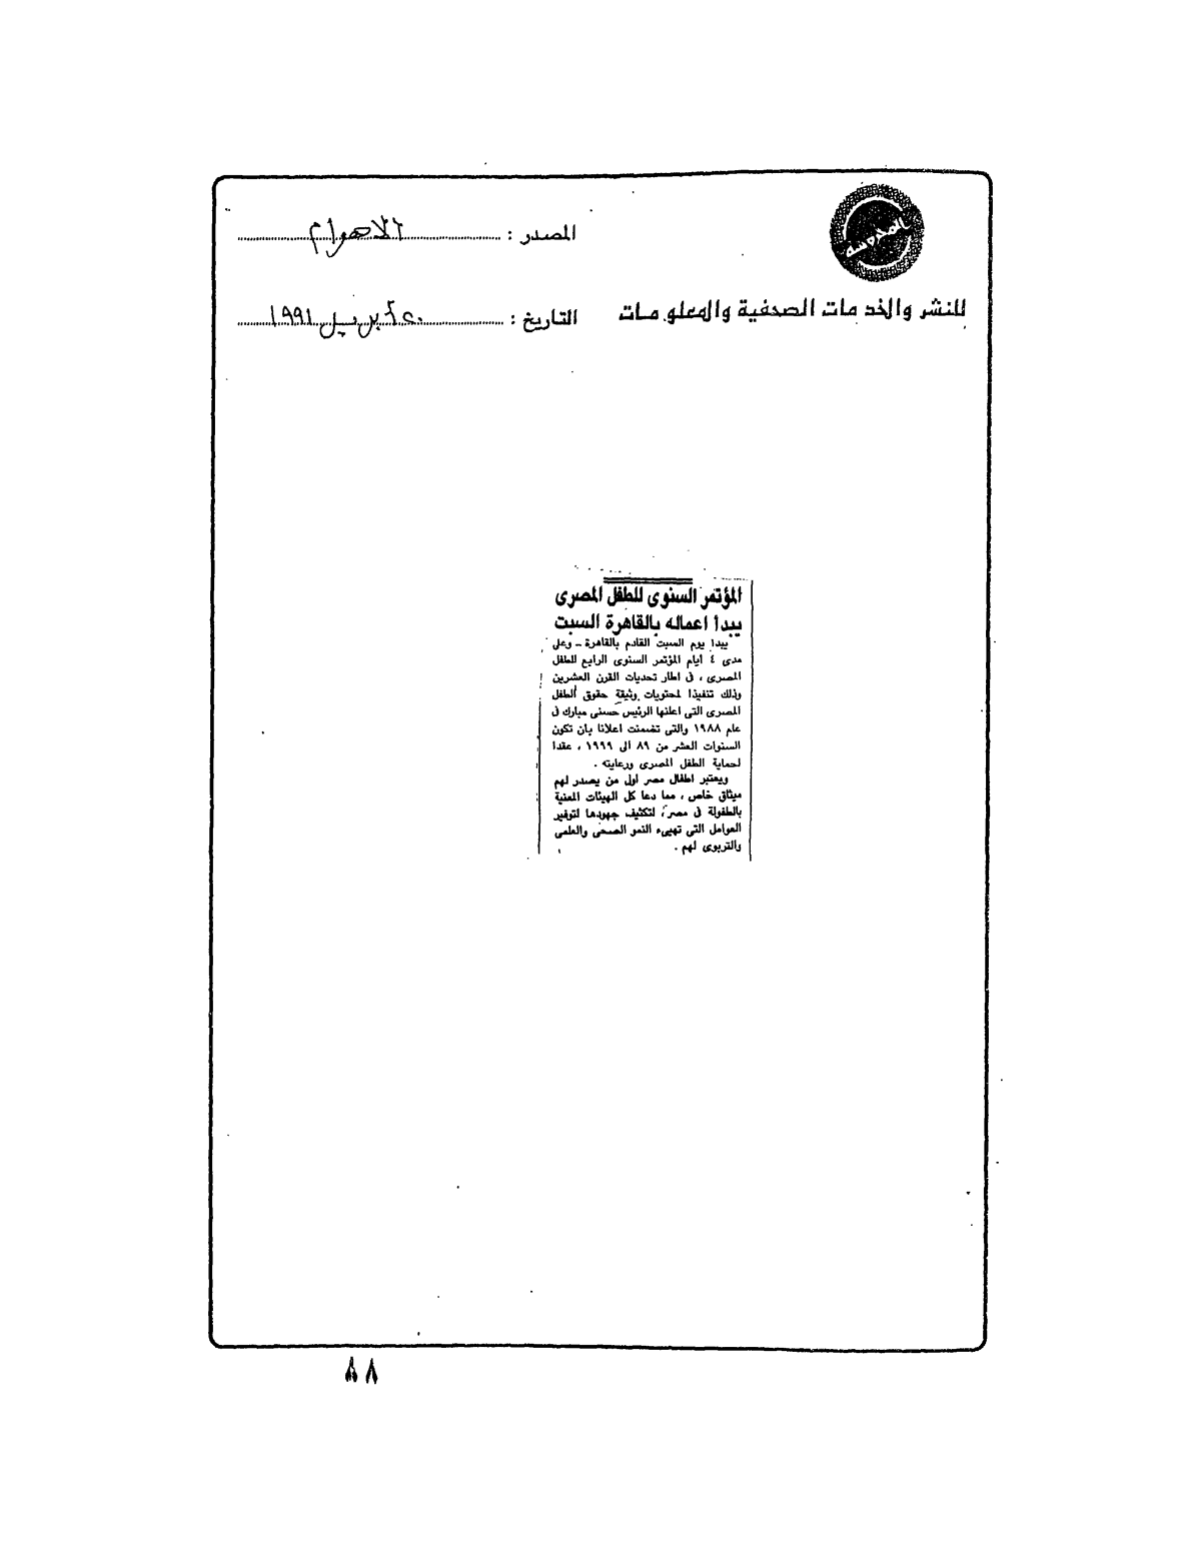 المحروسة
المصدر : الاهرام
للنشر والخدمات الصحفية والمعلومات
التاريخ : ٢٠ أبريل ١٩٩١
المؤتمر السنوى للطفل المصرى
يبدأ اعماله بالقاهرة السبت
يبدا يوم السبت القادم بالقاهرة ـ وعلى
مدى ٤ أيام المؤتمر السنوى الرابع للطفل
المصرى ، فى اطار تحديات القرن العشرين
وذلك تنفيذا لمحتويات وثيقة حقوق الطفل
المصرى التى اعلنها الرئيس حسنى مبارك فى
عام ١٩٨٨ والتى تضمنت اعلانا بان تكون
السنوات العشر من ٨٩ الى ١٩٩٩ ، عقدا
لحماية الطفل المصرى ورعايته .
ويعتبر اطفال مصر اول من يصدر لهم
ميثاق خاص ، مما دعا كل الهيئات المعنية
بالطفولة فى مصر ، لتكثيف جهودها لتوفير
العوامل التى تهيىء النمو الصحى والعلمى
والتربوى لهم .